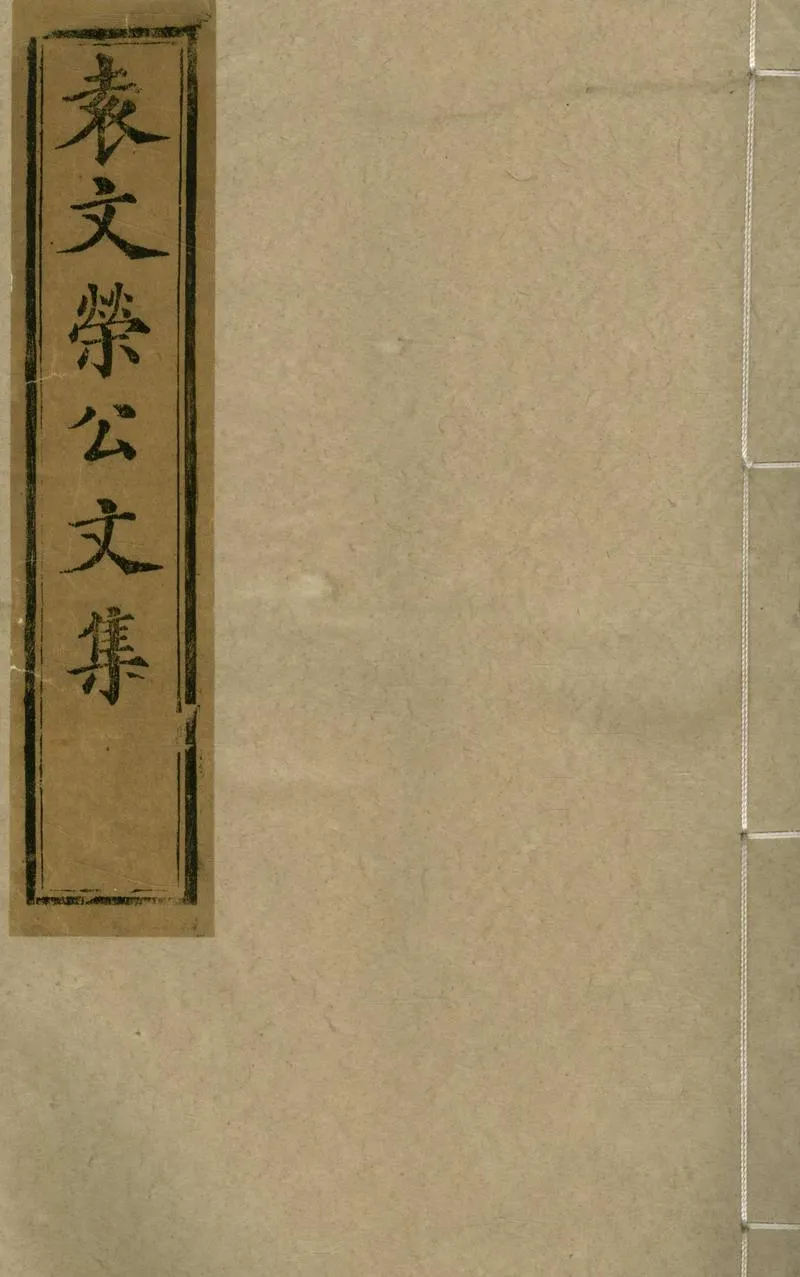 袁文榮公文集